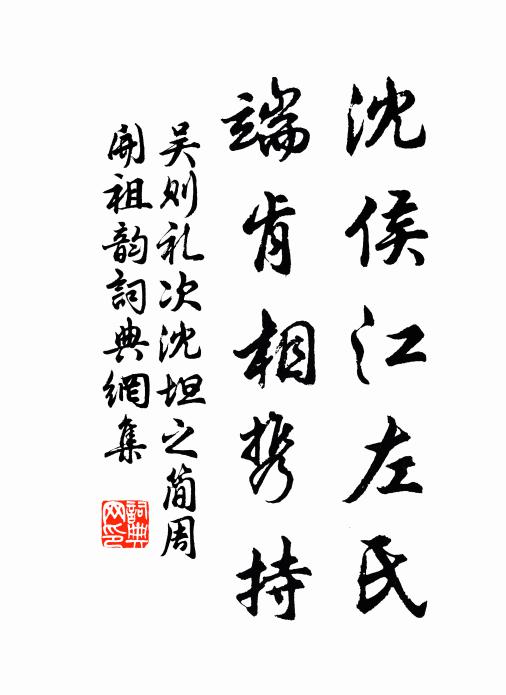 沈侯江左氏
端肯相携持
吴则礼次沈坦之简周
开祖韵词典網集
詞典
网印